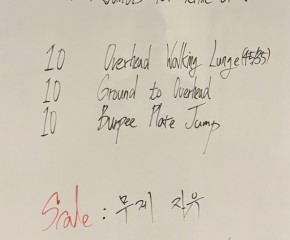 10 Overhead Walking Lunge (45/35)
10 Ground to Overhead
10 Burpee Plate Jump
Scale : 무게 자유